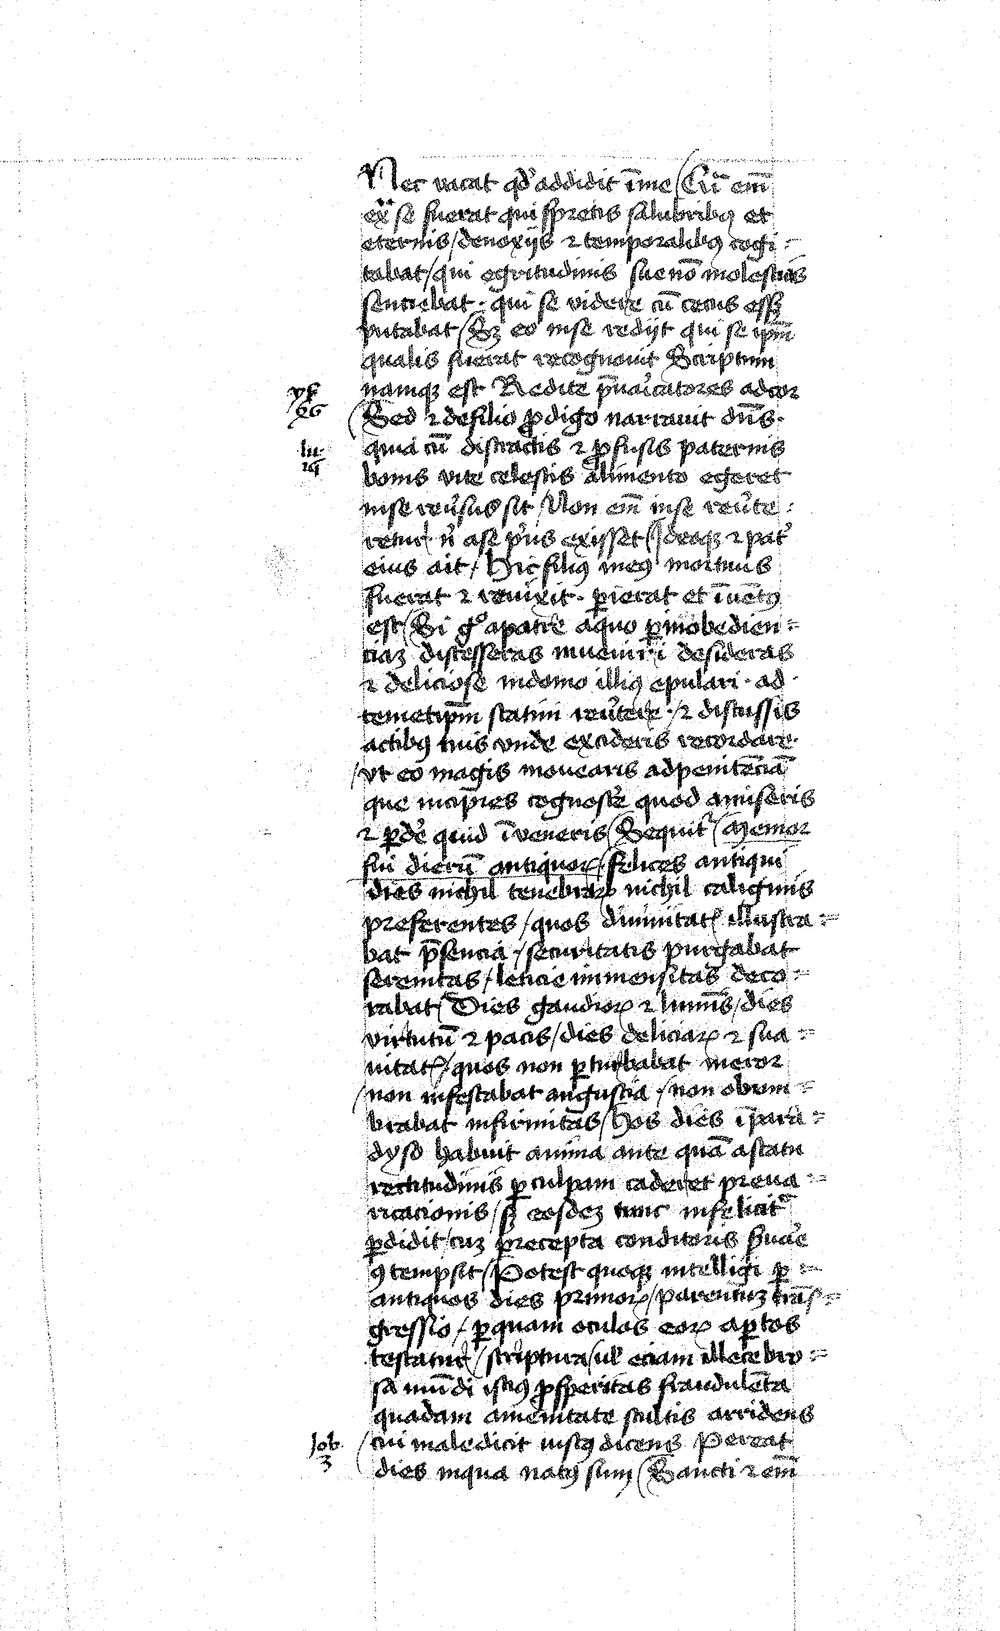 Nec vacat qd' addidit ī me / Cū em̄
ex se fuerat qui spretis salubribꝫ et
eternis / de noxijs ⁊ temporalibꝫ cogi =
tabat / qui egritudinis sue nō molestias
senciebat · qui se videre cū cecus esset
putabat / Sꝫ eo in se redijt qui se ipm̄
qualis fuerat recognouit Scriptum
namqꝫ est Redite p̄uaricatores ad cor
Sed ⁊ de filio ꝓdigo narrauit dn̄s ·
quia cū distractis ⁊ ꝓfusis paternis
bonis vite celestis alimento egeret
in se reu'sus sit / Non em̄ in se reu'te =
retur n' a se p'us exijsset / Ideoqꝫ ⁊ pat'
eius ait / Hic filiꝯ meꝯ mortuus
fuerat ⁊ reuixit · ꝑierat et īuentꝯ
est / Si gº a patre a quo ꝑ inobedien =
ciaꝫ discesseras inueniri desideras
⁊ deliciose in domo illiꝯ epulari · ad
temetip̄m statim reu'tere / ⁊ discussis
actibꝫ tuis vnde excideris recordare
/ vt eo magis mouearis ad penitēciā
que incipies cognosce' quod amiseris
⁊ ꝑde' quid īueneris / Sequit' / Memor
fui dierū antiquoꝝ / Felices antiqui
dies nichil tenebraꝝ nichil caliginis
preferentes / quos diuinitat' illustra =
bat p̄sencia / securitatis purgabat
serenitas / leticie immensitas deco =
rabat / Dies gaudioꝝ ⁊ lumīs / dies
virtutū ⁊ pacis / dies deliciaꝝ ⁊ sua =
uitat' / quos non ꝑturbabat meror
/ non infestabat angustia / non obum =
brabat infirmitas / Hos dies ī para =
dyso habuit anima ante quā a statu
rectitudinis ꝑ culpam caderet preua =
ricacionis / sꝫ eosdeꝫ tunc infelicit'
ꝑdidit / cuꝫ precepta conditoris s'uare
ꝯtempsit / Potest quoqꝫ intelligi ꝑ =
antiquos dies primoꝝ / parentuꝫ trās =
gressio / ꝑ quam oculos eoꝝ aꝑtos
testatur / scriptura / ul' eciam illecebro =
sa mūdi istiꝯ ꝓsperitas fraudulēta
quadam amenitate stultis arridens
/ cui maledicit iustꝯ dicens Pereat
dies in qua natꝯ sum / Sancti ⁊ em̄
lu
Job
3